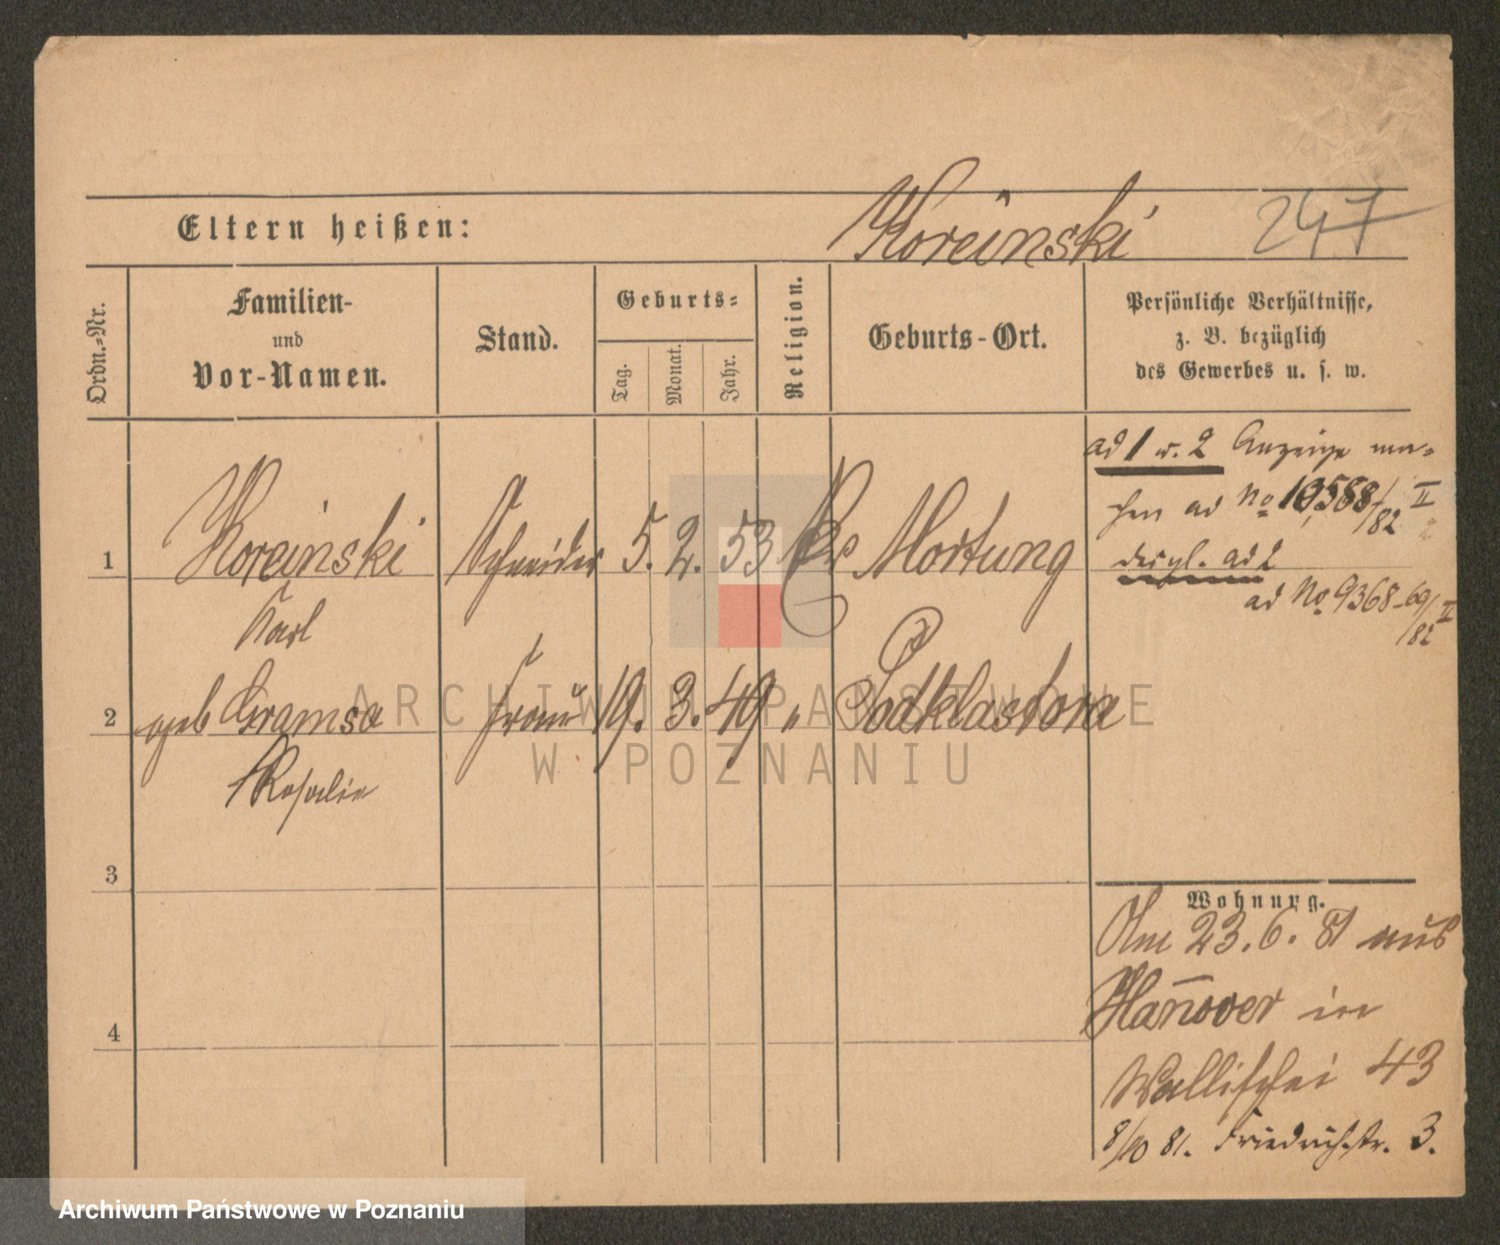 Koreinski 247
Eltern heißen:
Ordn.-Nr.
Familien-
und
Vor-Namen.
Stand.
Geburts-
Tag.
Monat.
Jahr.
Religion.
Geburts-Ort.
Persönliche Verhältnisse,
z. B. bezüglich
des Gewerbes u. s. w.
ad 1 u. 2 Anzeige ma-
chen ad No
/82 II
1 Koreinski Schneider 5. 2. 53 Mortung
desgl. ad 2
ad No 9368-69/II
/82
Karl
2 geb Gramsa Frau 19. 3. 49 " Podklastora
Rosalie
ARCHIWUM PAŃSTWOWE
W POZNANIU
3
Wohnung.
Am 23.6.81 aus
Hannover in
4
Wallischei 43
8/10 81. Friedrichstr. 3.
Archiwum Państwowe w Poznaniu